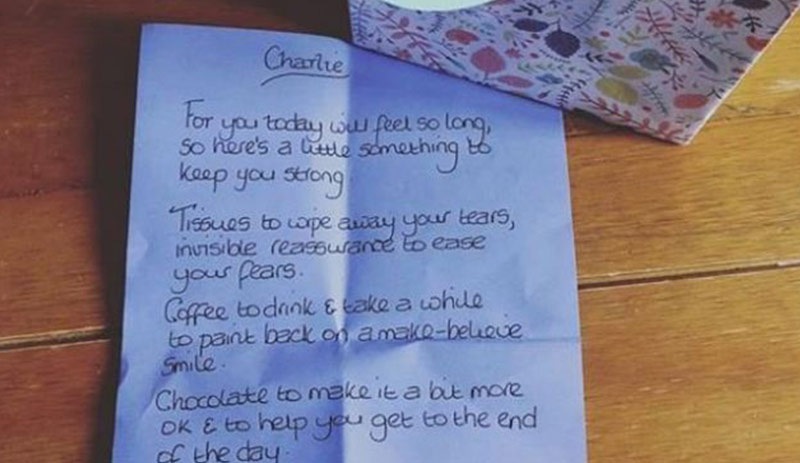 Charlie
For you today will feel so long,
so here's a little something to
keep you strong
Tissues to wipe away your tears,
invisible reassurance to ease
your fears.
Coffee to drink & take a while
to paint back on a make-believe
smile.
Chocolate to make it a bit more
OK & to help you get to the end
of the day.